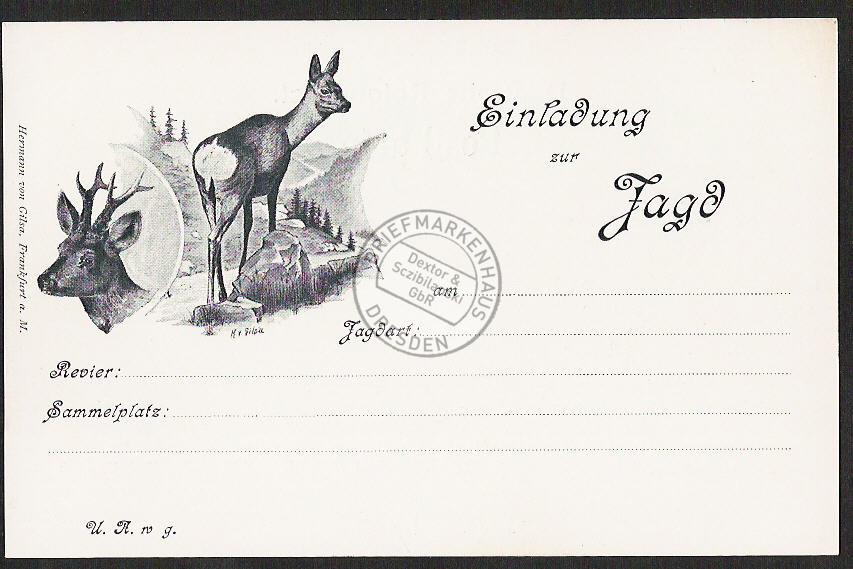 Einladung
zur
Jagd
am
Jagdart:
Revier:
Sammelplatz:
U. A. w g.
Hermann von Gilsa, Frankfurt a. M.
H v Gilsa
BRIEFMARKENHAUS
Dextor &
GbR
DRESDEN